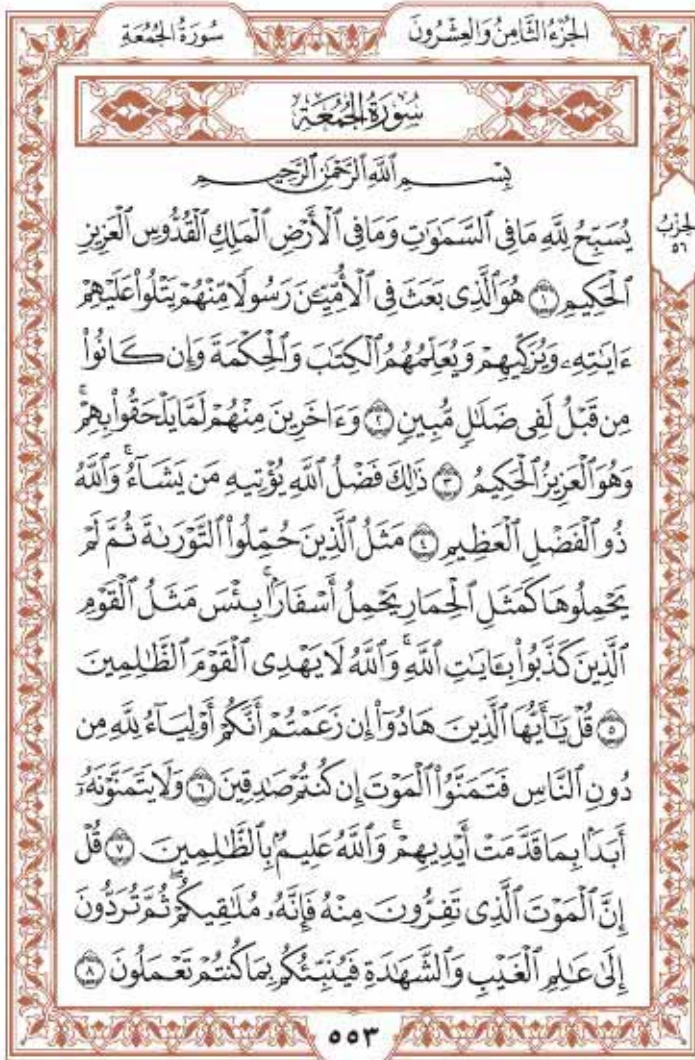 الجُزْءُ الثَّامِنُ وَالعِشْرُونَ
سُورَةُ الجُمُعَةِ
سُورَةُ الجُمُعَةِ
بِسْمِ ٱللَّهِ ٱلرَّحْمَٰنِ ٱلرَّحِيمِ
يُسَبِّحُ لِلَّهِ مَا فِي ٱلسَّمَٰوَٰتِ وَمَا فِي ٱلْأَرْضِ ٱلْمَلِكِ ٱلْقُدُّوسِ ٱلْعَزِيزِ
ٱلْحَكِيمِ ١ هُوَ ٱلَّذِي بَعَثَ فِي ٱلْأُمِّيِّـۧنَ رَسُولًا مِّنْهُمْ يَتْلُوا۟ عَلَيْهِمْ
ءَايَٰتِهِۦ وَيُزَكِّيهِمْ وَيُعَلِّمُهُمُ ٱلْكِتَٰبَ وَٱلْحِكْمَةَ وَإِن كَانُوا۟
مِن قَبْلُ لَفِي ضَلَٰلٍ مُّبِينٍ ٢ وَءَاخَرِينَ مِنْهُمْ لَمَّا يَلْحَقُوا۟ بِهِمْۚ
وَهُوَ ٱلْعَزِيزُ ٱلْحَكِيمُ ٣ ذَٰلِكَ فَضْلُ ٱللَّهِ يُؤْتِيهِ مَن يَشَآءُۚ وَٱللَّهُ
ذُو ٱلْفَضْلِ ٱلْعَظِيمِ ٤ مَثَلُ ٱلَّذِينَ حُمِّلُوا۟ ٱلتَّوْرَىٰةَ ثُمَّ لَمْ
يَحْمِلُوهَا كَمَثَلِ ٱلْحِمَارِ يَحْمِلُ أَسْفَارًۢاۚ بِئْسَ مَثَلُ ٱلْقَوْمِ
ٱلَّذِينَ كَذَّبُوا۟ بِـَٔايَٰتِ ٱللَّهِۚ وَٱللَّهُ لَا يَهْدِي ٱلْقَوْمَ ٱلظَّٰلِمِينَ
٥ قُلْ يَٰٓأَيُّهَا ٱلَّذِينَ هَادُوٓا۟ إِن زَعَمْتُمْ أَنَّكُمْ أَوْلِيَآءُ لِلَّهِ مِن
دُونِ ٱلنَّاسِ فَتَمَنَّوُا۟ ٱلْمَوْتَ إِن كُنتُمْ صَٰدِقِينَ ٦ وَلَا يَتَمَنَّوْنَهُۥٓ
أَبَدًۢا بِمَا قَدَّمَتْ أَيْدِيهِمْۚ وَٱللَّهُ عَلِيمٌۢ بِٱلظَّٰلِمِينَ ٧ قُلْ
إِنَّ ٱلْمَوْتَ ٱلَّذِي تَفِرُّونَ مِنْهُ فَإِنَّهُۥ مُلَٰقِيكُمْۖ ثُمَّ تُرَدُّونَ
إِلَىٰ عَٰلِمِ ٱلْغَيْبِ وَٱلشَّهَٰدَةِ فَيُنَبِّئُكُم بِمَا كُنتُمْ تَعْمَلُونَ ٨
الحِزْبُ
٥٦
٥٥٣